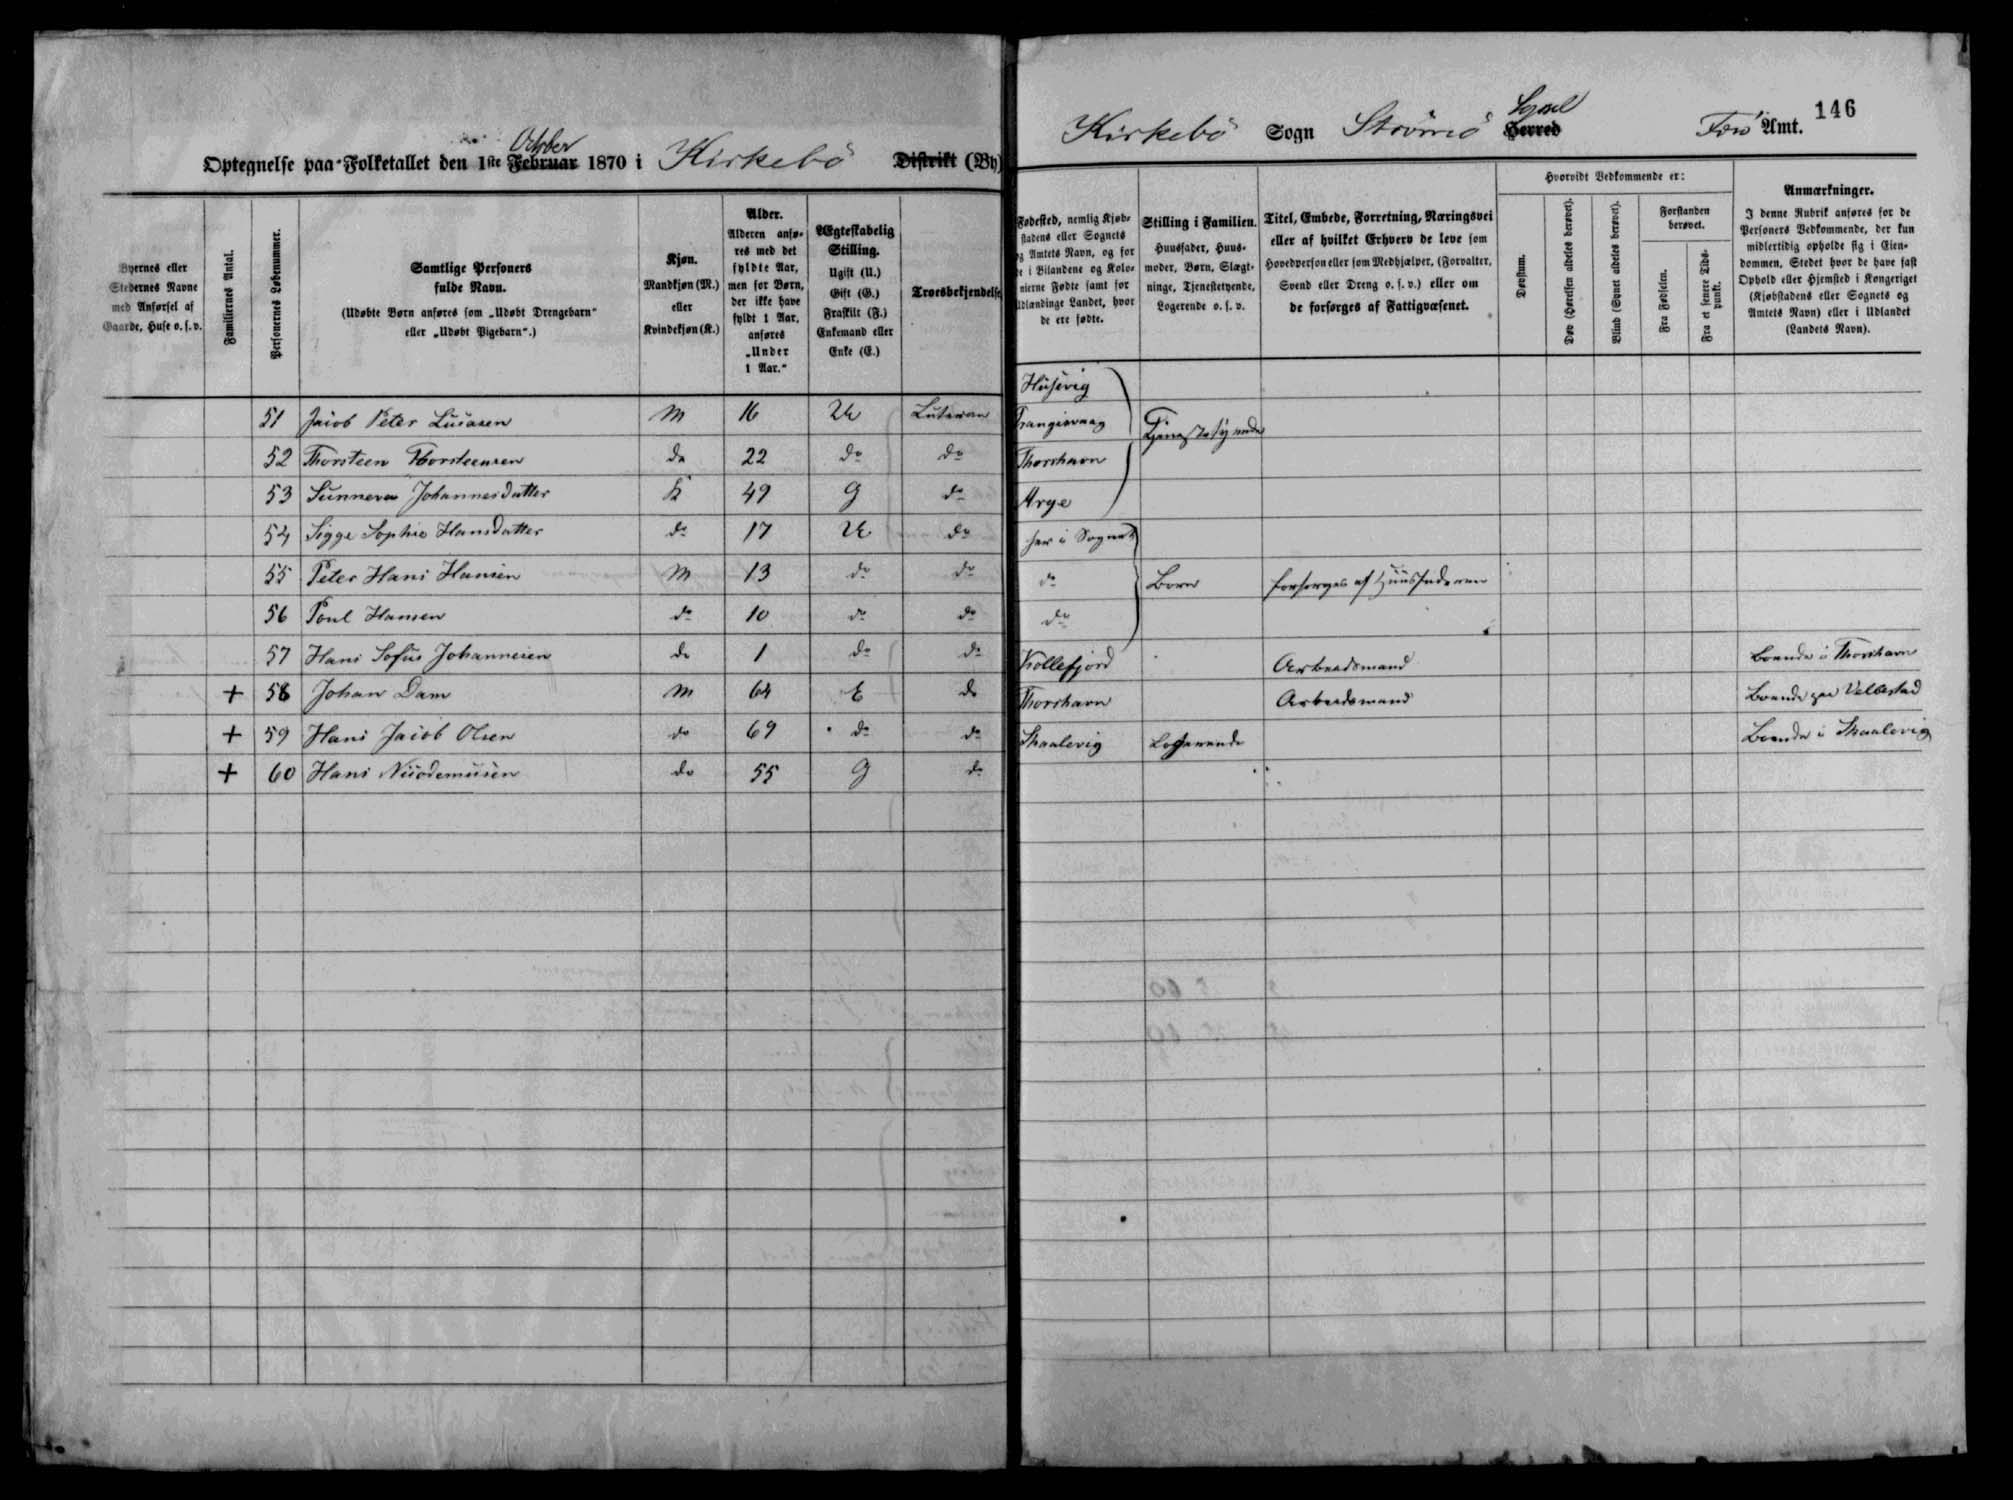 Optegnelse paa Folketallet den 1ste Februar October 1870 i Kirkebö Distrikt (By)
Kirkebö Sogn Strömö Herred Syssel Færö Amt. 146
Byernes eller Stedernes Navne med Anførsel af Gaarde, Huse o. s. v.
Familiernes Antal.
Personernes Løbenummer.
Samtlige Personers fulde Navn.
(Udøbte Børn anføres som „Udøbt Drengebarn“ eller „Udøbt Pigebarn“.)
Kjøn.
Mandkjøn (M.) eller Kvindekjøn (K.)
Alder.
Alderen anføres med det fyldte Aar, men for Børn, der ikke have fyldt 1 Aar, anføres „Under 1 Aar.“
Ægteskabelig Stilling.
Ugift (U.) Gift (G.) Fraskilt (F.) Enkemand eller Enke (E.)
Troesbekjendelse
Fødested, nemlig Kjøbstadens eller Sognets og Amtets Navn, og for de i Bilandene og Kolonierne Fødte samt for Udlændinge Landet, hvor de ere fødte.
Stilling i Familien.
Huusfader, Huusmoder, Børn, Slægtninge, Tjenestetyende, Logerende o. s. v.
Titel, Embede, Forretning, Næringsvei eller af hvilket Erhverv de leve som Hovedperson eller som Medhjælper, (Forvalter, Svend eller Dreng o. s. v.) eller om de forsørges af Fattigvæsenet.
Hvorvidt Vedkommende er:
Døvstum.
Døv (Hørelsen aldeles berøvet).
Blind (Synet aldeles berøvet).
Forstanden berøvet.
Fra Fødselen.
Fra et senere Tidspunkt.
Anmærkninger.
I denne Rubrik anføres for de Personers Vedkommende, der kun midlertidig opholde sig i Eiendommen, Stedet hvor de have fast Ophold eller Hjemsted i Kongeriget (Kjøbstadens eller Sognets og Amtets Navn) eller i Udlandet (Landets Navn).
51 Jacob Peter Lucasen M 16 U Luteran Husevig
52 Thorsteen Thorsteensen do 22 do do Trangisvaag Tjenestetyende
53 Sunneva Johannesdatter K 49 G do Thorshavn
54 Sigge Sophie Hansdatter do 17 U do Arge
55 Peter Hans Hansen M 13 do do her i Sognet
56 Poul Hansen do 10 do do do Born forsorges af Huusfaderen
57 Hans Sofus Johannesen do 1 do do do
+ 58 Johan Dam M 64 E do Kollefjord Arbeidsmand boende i Thorshavn
+ 59 Hans Jacob Olsen do 69 do do Thorshavn Arbeidsmand Boende paa Velbestad
+ 60 Hans Nicodemusen do 55 G do Skaalevig Logerende Boende i Skaalevig